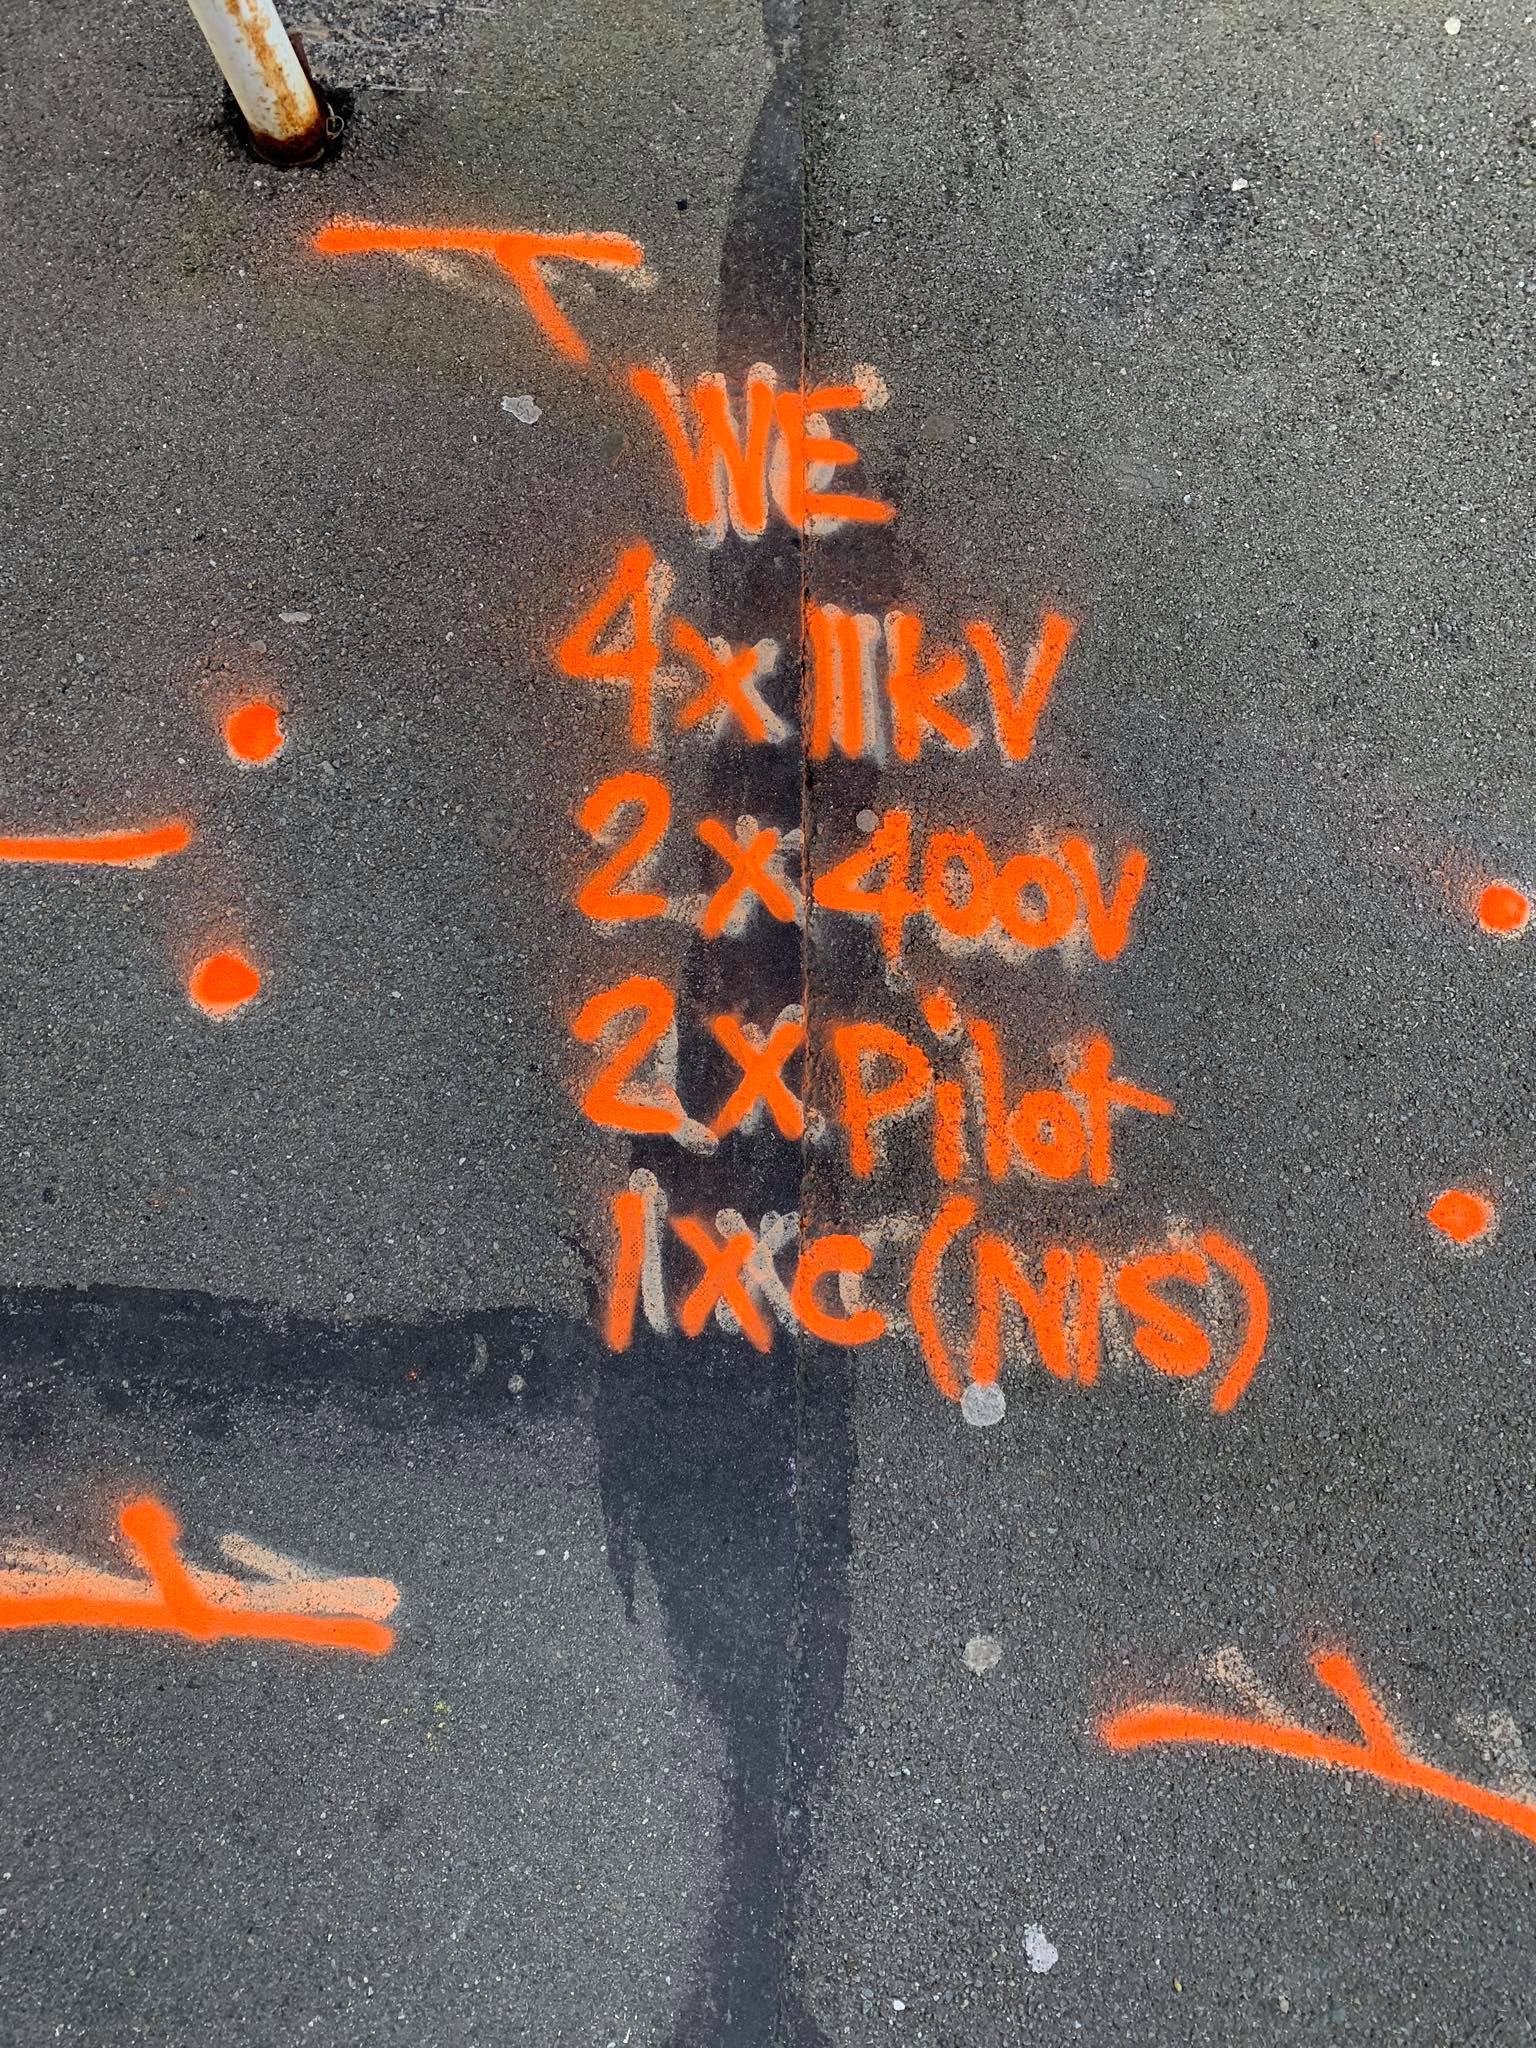 WE
4x 11kV
2 x 400V
2 x Pilot
1 x c (NIS)